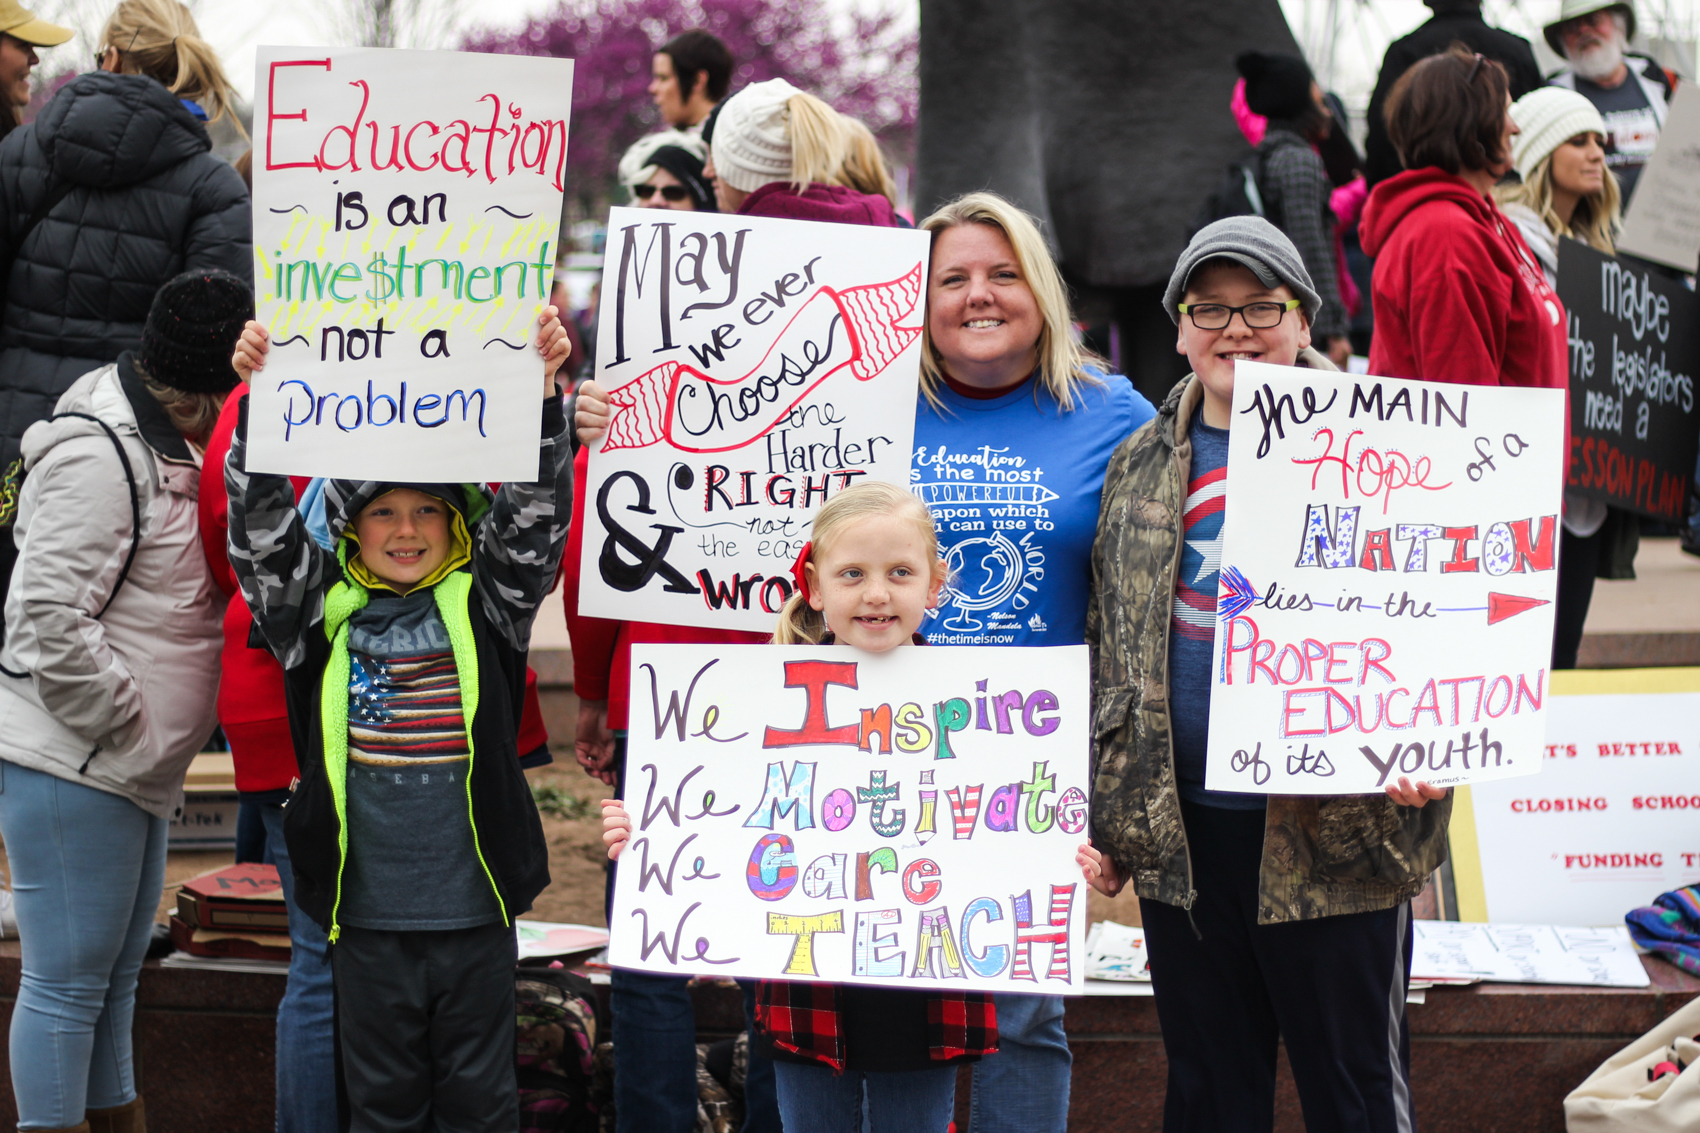 Education
is an
inve$tment
not a
Problem
May
we ever
Choose
the
Harder
& RIGHT
not
the eas
wro
Education
s the most
POWERFUL
apon which
u can use to
WORLD
-Nelson
Mandela
#thetimeisnow
The MAIN
Hope of a
NATION
lies in the
PROPER
EDUCATION
of its youth.
We Inspire
We Motivate
We Care
We TEACH
maybe
the legislators
need a
ESSON PLAN
T'S BETTER
CLOSING SCHOO
"FUNDING T